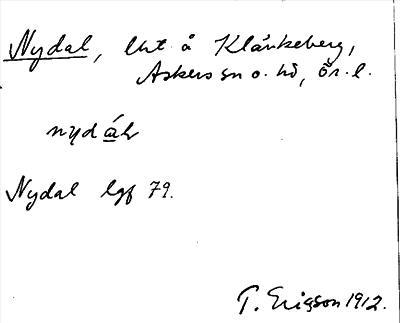 Nydal, lht å Klankeberg,
Askers sn o. hd, Ör. l.
nydál
Nydal lgf 79.
T. Ericson 1912.